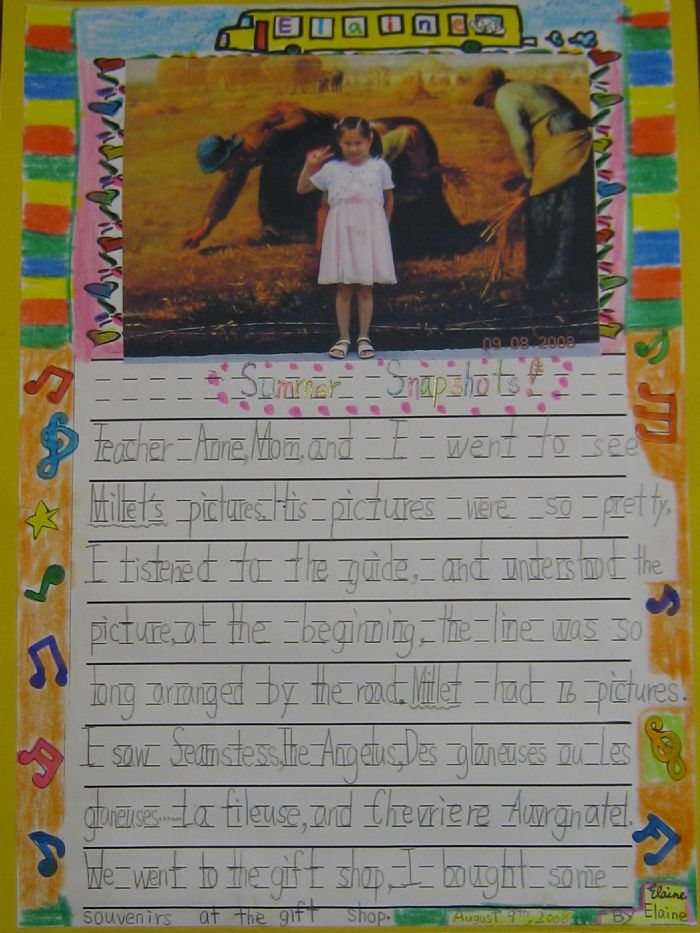 Elaine
09.08.2008
Summer Snapshots!
Teacher Anne, Mom, and I went to see
Millet's pictures. His pictures were so pretty.
I listened to the guide, and understood the
picture, at the beginning, the line was so
long arranged by the road. Millet had 16 pictures.
I saw Seamstess, The Angelus, Des glaneuses ou Les
glaneuses...... La fileuse, and Chevriere Auvrgnatel.
We went to the gift shop, I bought some
souvenirs at the gift shop.
August 9th, 2008
By Elaine
Elaine